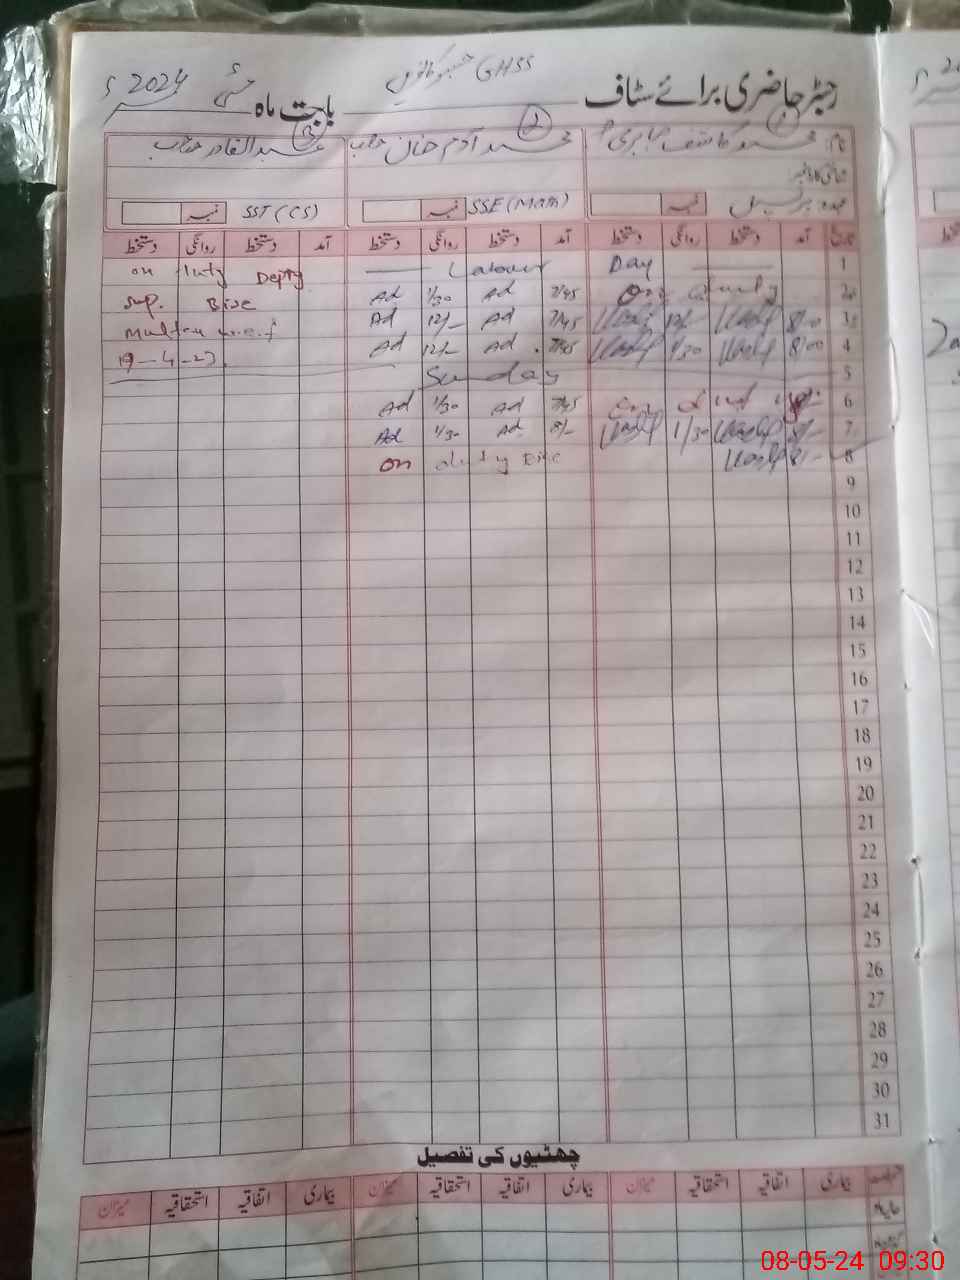 GHSS
رجسٹر حاضری برائے سٹاف بابت ماہ مئی 2024ء
نام: محمد کاشف صابری محمد آدم خان صاحب عبدالقادر صاحب
شناختی کارڈ نمبر:
عہدہ: پرنسپل نمبر SSE (Math) نمبر SST (CS) نمبر
تاریخ آمد دستخط روانگی دستخط آمد دستخط روانگی دستخط آمد دستخط روانگی دستخط
1 Labour Day on Duty Depty
2 on duty 7/45 Ad 1/30 Ad Sup. Bise
3 8/00 12/- 7/45 Ad 12/- Ad Multan w.e.f
4 8/00 1/30 7/45 Ad 12/- Ad 19-4-23
5 Sunday
6 on duty 7/45 Ad 1/30 Ad
7 8/- 1/30 8/- Ad 1/30 Ad
8 8/- on duty Bise
9
10
11
12
13
14
15
16
17
18
19
20
21
22
23
24
25
26
27
28
29
30
31
چھٹیوں کی تفصیل
بیماری اتفاقیہ استحقاقیہ میزان بیماری اتفاقیہ استحقاقیہ میزان بیماری اتفاقیہ استحقاقیہ میزان
08-05-24 09:30